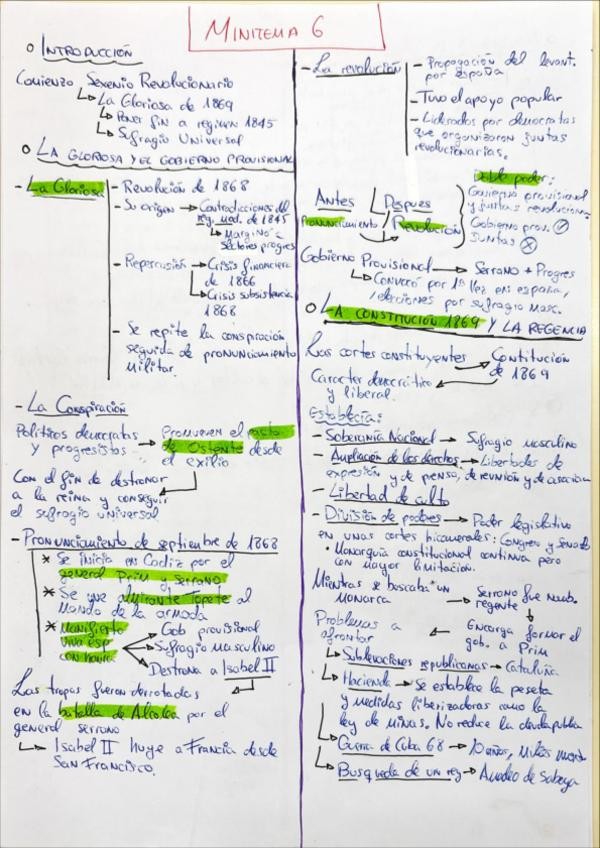 MINITEMA 6
o INTRODUCCIÓN
Comienzo Sexenio Revolucionario
La Gloriosa de 1869
Poner fin a regimen 1845
Sufragio Universal
o LA GLORIOSA Y EL GOBIERNO PROVISIONAL
- La Gloriosa
- Revolución de 1868
- Su origen → Contradicciones del
reg. mod. de 1845
Marginó a
sectores progres
- Repercusión → Crisis financiera
de 1866
Crisis subsistencia
1868
- Se repite la conspiración
seguida de pronunciamiento
Militar.
- La Conspiración
Politicos democratas
y progresistas → Promueven el pacto
de Ostente desde
el exilio
Con el fin de destronar
a la reina y conseguir
el sufragio universal
- Pronunciamiento de septiembre de 1868
* Se inicia en Cadiz por el
general Prim y Serrano
* Se une almirante Topete al
Mando de la armada
* Manifiesto
viva esp
con honra
Gob provisional
Sufragio Masculino
Destrona a Isabel II
Las tropas fueron derrotadas
en la batalla de Alcolea por el
general serrano
Isabel II huye a Francia desde
San Francisco.
- La revolución
- Propagación del levant.
por españa
- Tuvo el apoyo popular
- Liderados por democratas
que organizaron juntas
revolucionarias.
Antes
Pronunciamiento
Despues
Revolución
Doble poder:
Gobierno provisional
y juntas revolucion
Gobierno prov. ✓
Juntas ⊗
Gobierno Provisional → Serrano + Progres
Convocó por 1ª vez en españa,
elecciones por sufragio masc.
o LA CONSTITUCIÓN 1869 Y LA REGENCIA
Las cortes constituyentes → Contitución
de 1869
Caracter democrático
y liberal.
Establecia:
- Soberanía Nacional → Sufragio masculino
- Ampliación de los derchos → Libertades de
expresión y de prensa, de reunión y de asociación
- Libertad de culto
- División de podores → Poder legislativo
en unas cortes bicamerales: Congreso y Senado
• Monarquia constitucional continua pero
con mayor limitacion.
Mientras se buscaba un
monarca → Serrano fue nomb.
regente
Encarga formar el
gob. a Prim
Problemas a
afrontar
Sublevaciones republicanas → Cataluña
Hacienda → Se establece la peseta
y medidas liberizadoras como la
ley de minas. No reduce la deuda publica
Guerra de Cuba 68 → 10 años, miles muert
Busqueda de un rey → Amadeo de Saboya